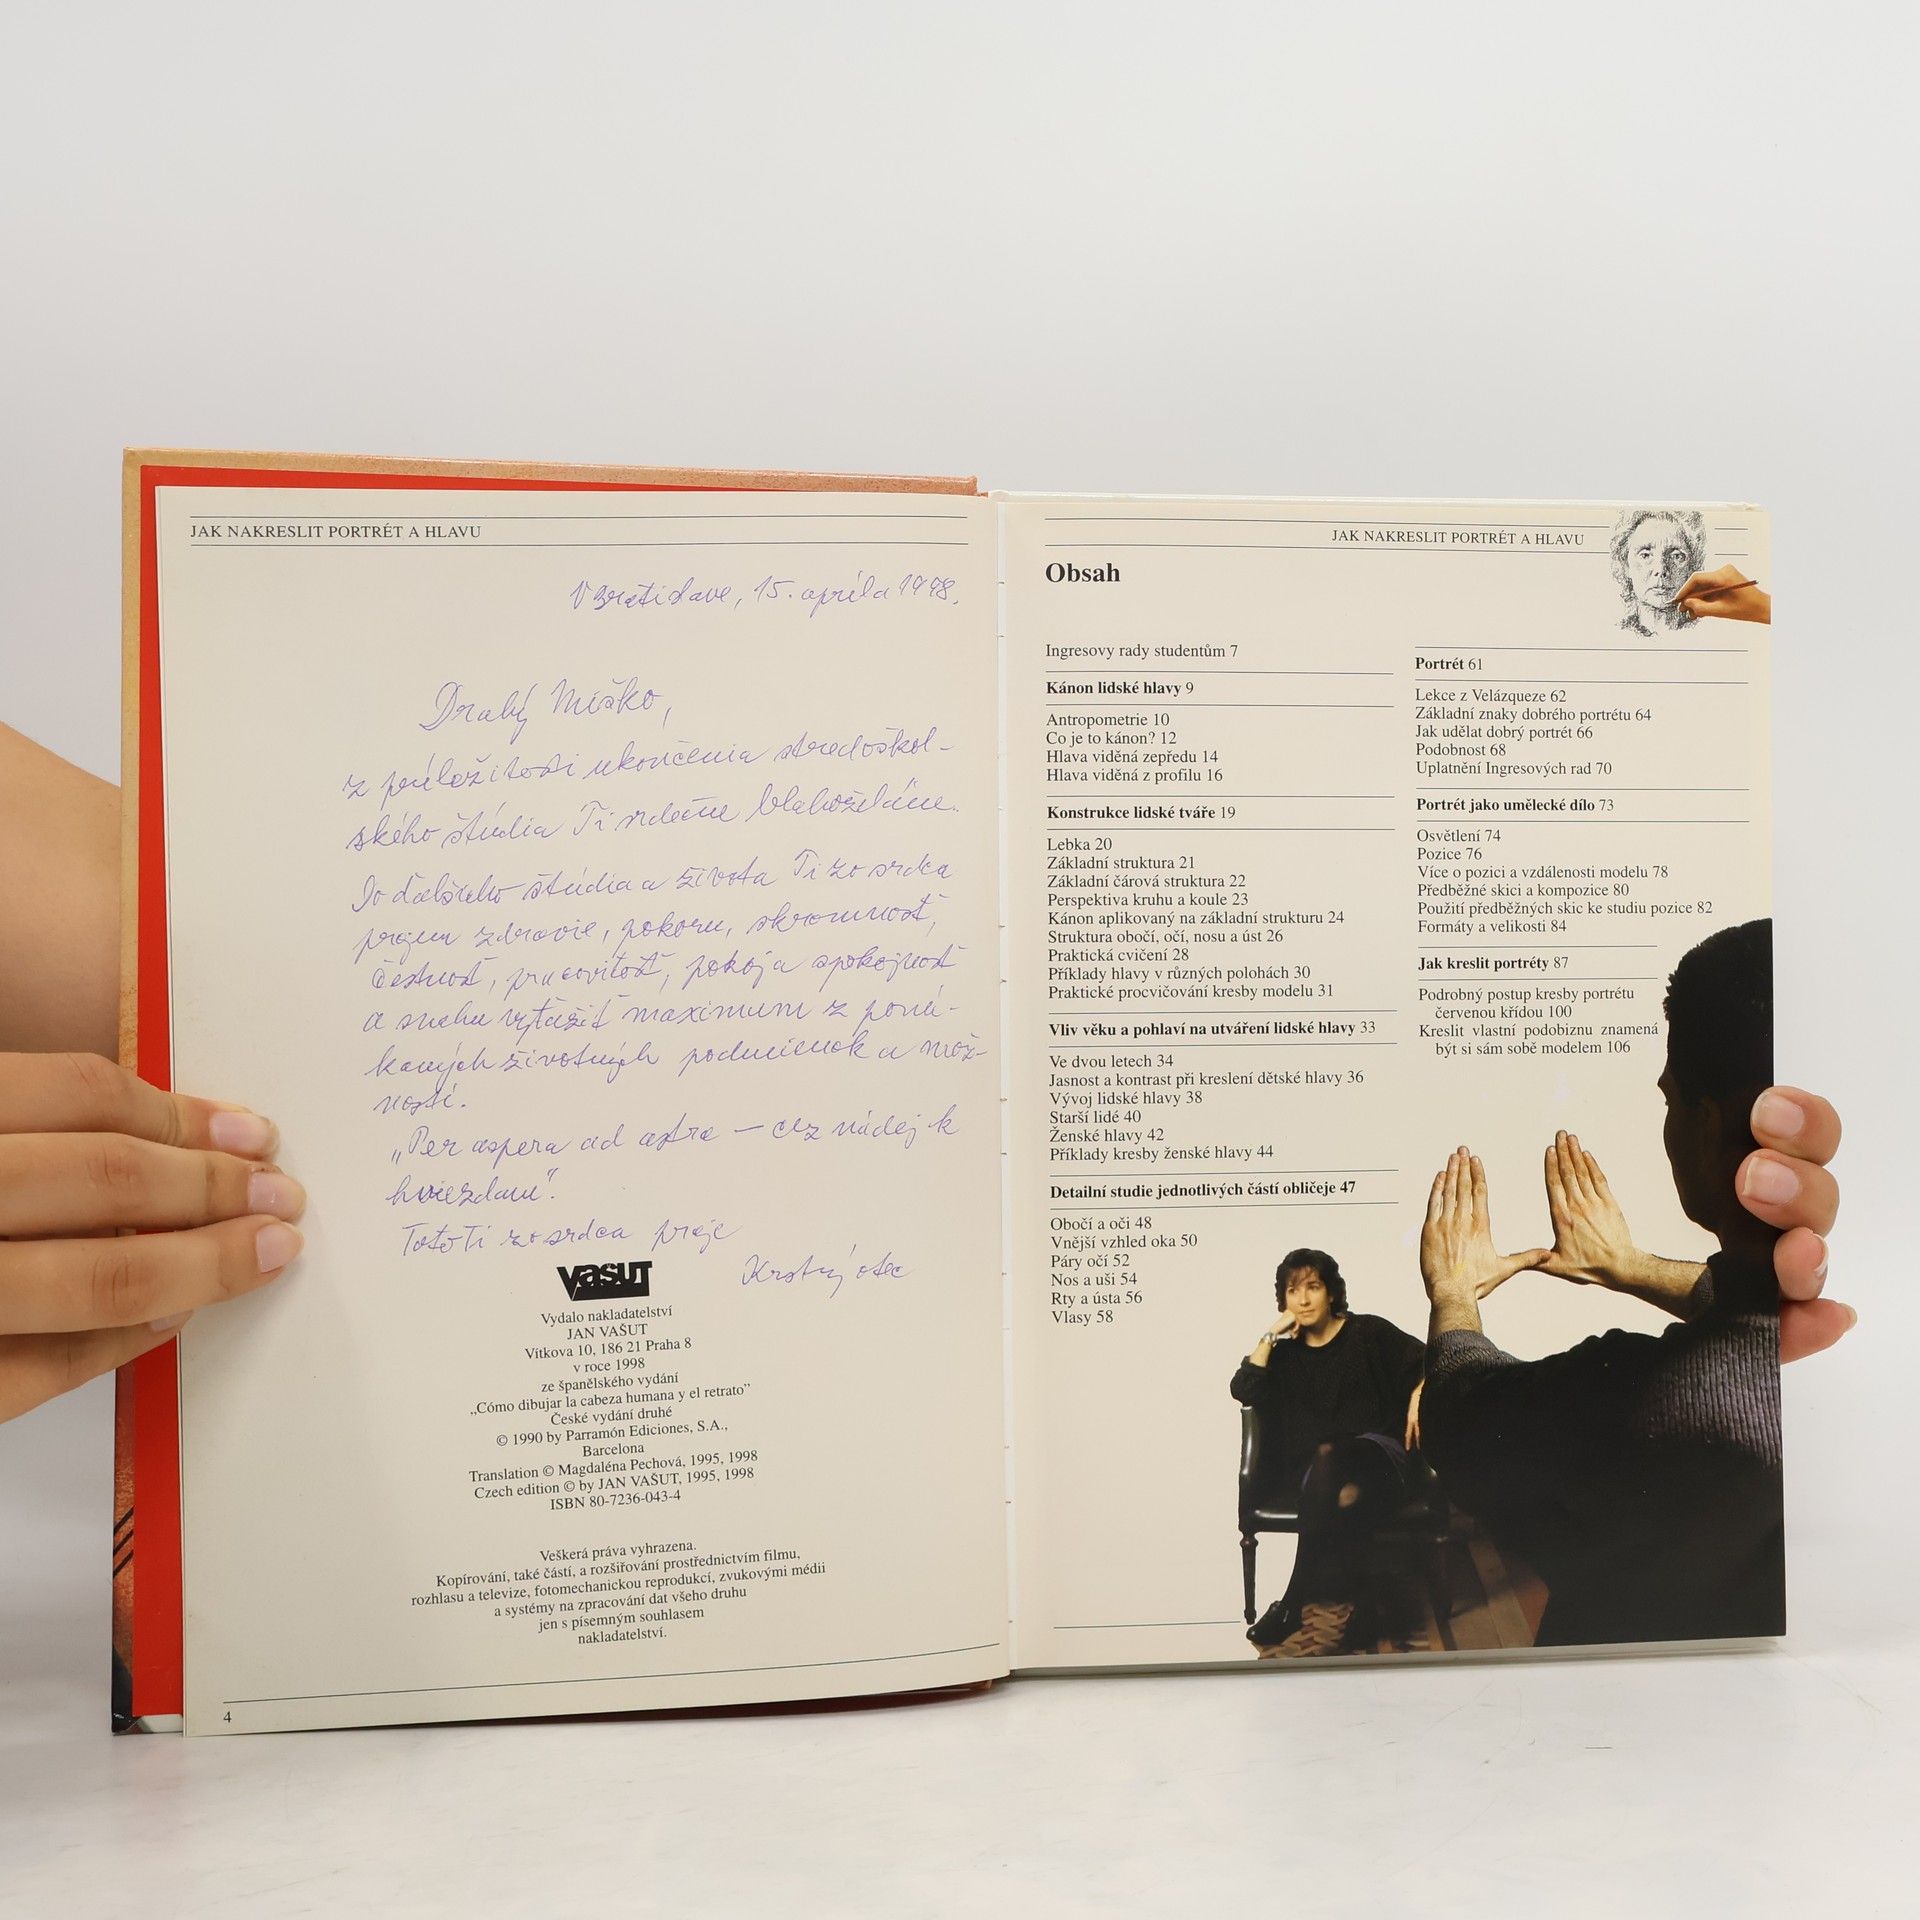 JAK NAKRESLIT PORTRÉT A HLAVU
V Bratislave, 15. apríla 1998.
Drahý Miško,
z príležitosti ukončenia stredoškol-
ského štúdia Ti srdečne blahoželáme.
Do ďalšieho štúdia a života Ti zo srdca
prajem zdravie, pokoru, skromnosť,
čestnosť, pracovitosť, pokoj a spokojnosť
a snahu vyťažiť maximum z ponú-
kaných životných podmienok a mož-
ností.
„Per aspera ad astra — cez nádej k
hviezdam".
Toto Ti zo srdca praje
Krstný otec
vasut
Vydalo nakladatelství
JAN VAŠUT
Vítkova 10, 186 21 Praha 8
v roce 1998
ze španělského vydání
„Cómo dibujar la cabeza humana y el retrato”
České vydání druhé
© 1990 by Parramón Ediciones, S.A.,
Barcelona
Translation © Magdaléna Pechová, 1995, 1998
Czech edition © by JAN VAŠUT, 1995, 1998
ISBN 80-7236-043-4
Veškerá práva vyhrazena.
Kopírování, také částí, a rozšiřování prostřednictvím filmu,
rozhlasu a televize, fotomechanickou reprodukcí, zvukovými médii
a systémy na zpracování dat všeho druhu
jen s písemným souhlasem
nakladatelství.
4
JAK NAKRESLIT PORTRÉT A HLAVU
Obsah
Ingresovy rady studentům 7
Kánon lidské hlavy 9
Antropometrie 10
Co je to kánon? 12
Hlava viděná zepředu 14
Hlava viděná z profilu 16
Konstrukce lidské tváře 19
Lebka 20
Základní struktura 21
Základní čárová struktura 22
Perspektiva kruhu a koule 23
Kánon aplikovaný na základní strukturu 24
Struktura obočí, očí, nosu a úst 26
Praktická cvičení 28
Příklady hlavy v různých polohách 30
Praktické procvičování kresby modelu 31
Vliv věku a pohlaví na utváření lidské hlavy 33
Ve dvou letech 34
Jasnost a kontrast při kreslení dětské hlavy 36
Vývoj lidské hlavy 38
Starší lidé 40
Ženské hlavy 42
Příklady kresby ženské hlavy 44
Detailní studie jednotlivých částí obličeje 47
Obočí a oči 48
Vnější vzhled oka 50
Páry očí 52
Nos a uši 54
Rty a ústa 56
Vlasy 58
Portrét 61
Lekce z Velázqueze 62
Základní znaky dobrého portrétu 64
Jak udělat dobrý portrét 66
Podobnost 68
Uplatnění Ingresových rad 70
Portrét jako umělecké dílo 73
Osvětlení 74
Pozice 76
Více o pozici a vzdálenosti modelu 78
Předběžné skici a kompozice 80
Použití předběžných skic ke studiu pozice 82
Formáty a velikosti 84
Jak kreslit portréty 87
Podrobný postup kresby portrétu
červenou křídou 100
Kreslit vlastní podobiznu znamená
být si sám sobě modelem 106